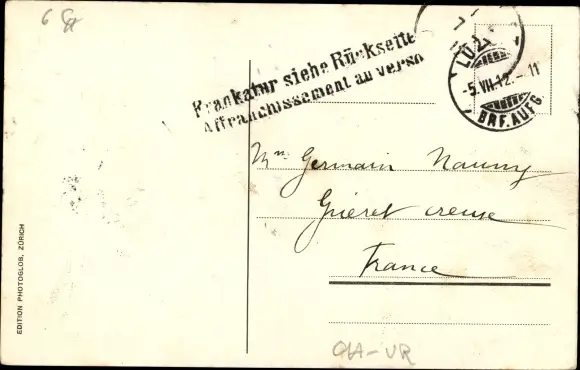 Frankatur siehe Rückseite
Affranchissement au verso
LUZ
-5.VII.12.-11
BRF.AUFG
Mr. Germain
Guéret creuse
France
EDITION PHOTOGLOB, ZÜRICH